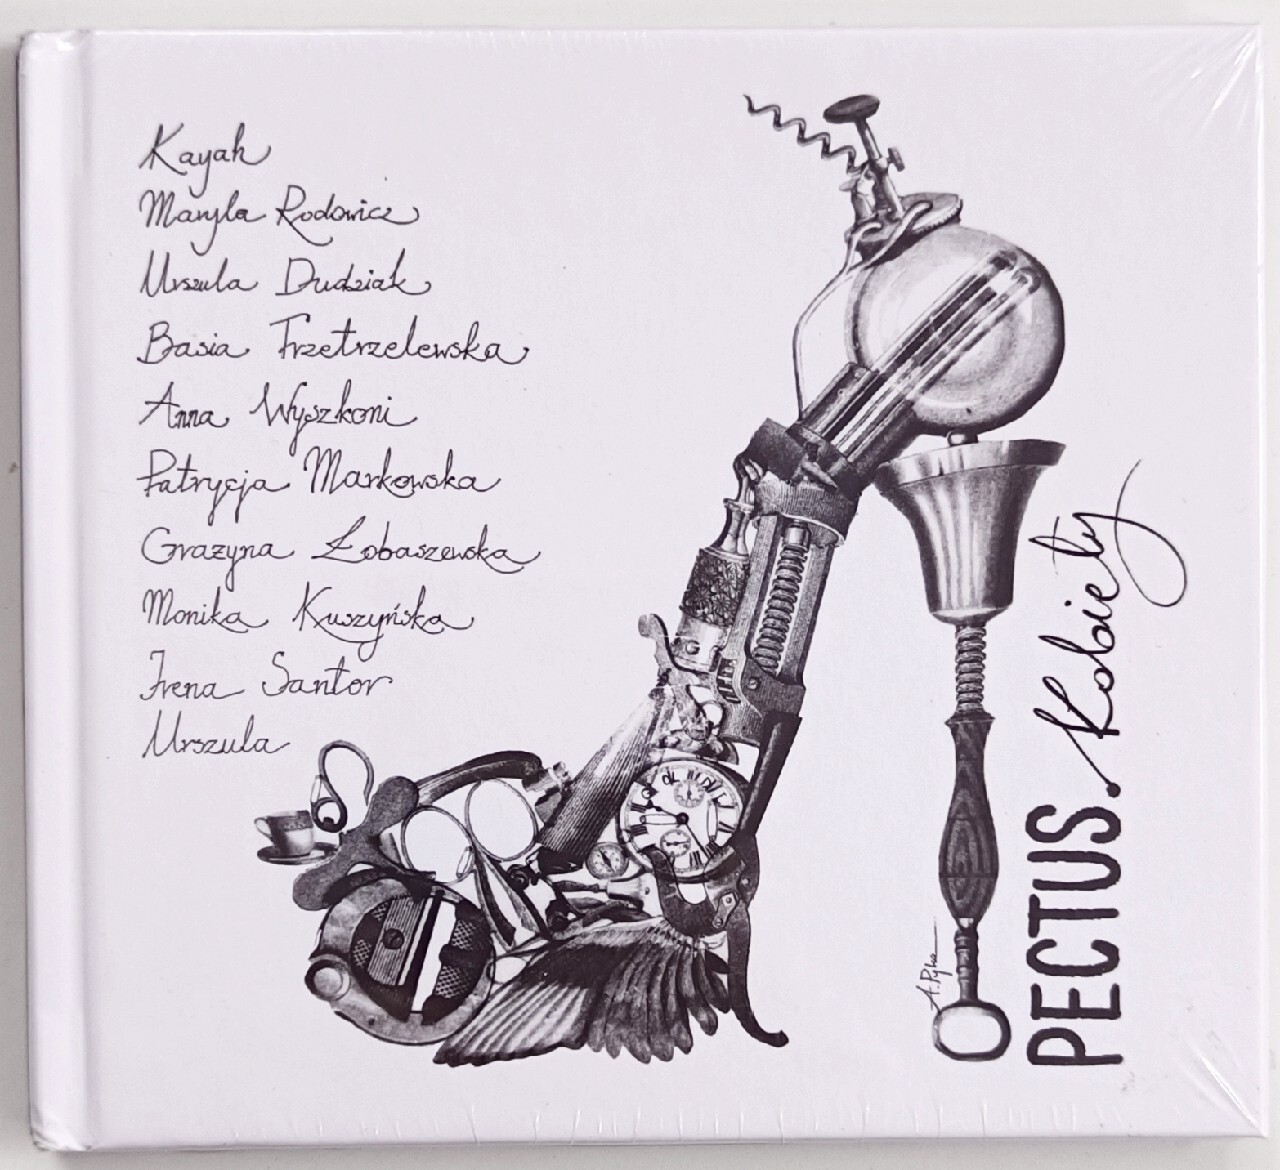 Kayah
Maryla Rodowicz
Urszula Dudziak
Basia Trzetrzelewska
Anna Wyszkoni
Patrycja Markowska
Grażyna Łobaszewska
Monika Kuszyńska
Irena Santor
Urszula
PECTUS. Kobiety
A. Pyka